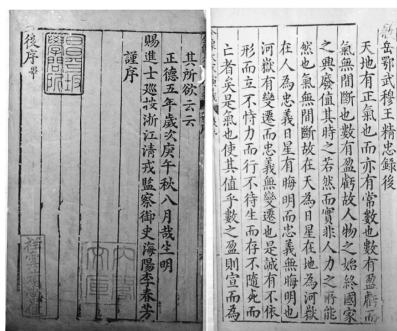 岳鄂武穆王精忠録後
天地有正氣也而亦有常數也數有盈虧而
氣無間斷也數有盈虧故人物之始終國家
之興廢值其時之若然而實非人力之所能
然也氣無間斷故在天為日星在地為河嶽
在人為忠義日星有晦明而忠義無晦明也
河嶽有變遷而忠義無變遷也是誠有不依
形而立不恃力而行不待生而存不隨死而
亡者矣是氣也使其值乎數之盈則宣而為
其所欲云云
正德五年歲次庚午秋八月哉生明
賜進士巡按浙江清戎監察御史海陽李春芳
謹序
後序畢
昌平坂
學問所